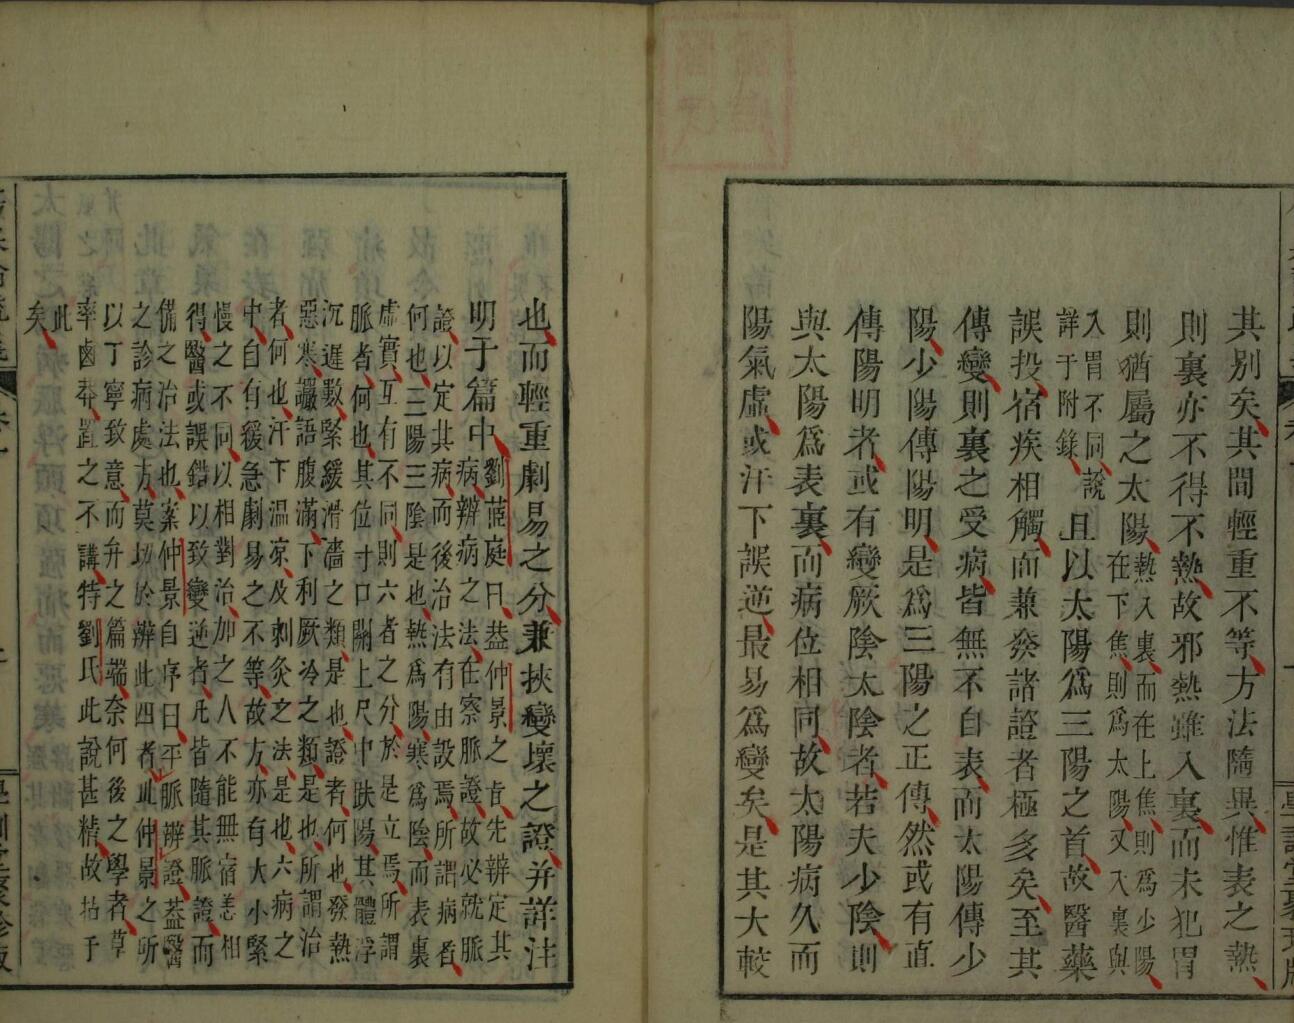 其別矣其間輕重不等方法隨異惟表之熱
則裏亦不得不熱故邪熱雖入裏而未犯胃
則猶屬之太陽熱入裏而在上焦則爲少陽
在下焦則爲太陽又入裏與
入胃不同說
詳于附錄且以太陽爲三陽之首故醫藥
誤投宿疾相觸而兼發諸證者極多矣至其
傳變則裏之受病皆無不自表而太陽傳少
陽少陽傳陽明是爲三陽之正傳然或有直
傳陽明者或有變厥陰太陰者若夫少陰則
與太陽爲表裏而病位相同故太陽病久而
陽氣虛或汗下誤逆最易爲變矣是其大較
也而輕重劇易之分兼挾變壞之證并詳注
明于篇中劉茝庭曰葢仲景之旨先辨定其
病辨病之法在察脈證故必就脈
證以定其病而後治法有由設焉所謂病者
何也三陽三陰是也熱爲陽寒爲陰而表裏
虛實互有不同則六者之分於是立焉所謂
脈者何也其位寸口關上尺中趺陽其體浮
沉遲數緊緩滑濇之類是也證者何也發熱
惡寒讝語腹滿下利厥冷之類是也所謂治
者何也汗下温凉及刺灸之法是也六病之
中自有緩急劇易之不等故方亦有大小緊
慢之不同以相對治加之人不能無宿恙相
得醫或誤錯以致變逆者凡皆隨其脈證而
備之治法也案仲景自序曰平脈辨證葢醫
之診病處方莫切於辨此四者此仲景之所
以丁寧致意而弁之篇端奈何後之學者草
率鹵莽置之不講特劉氏此說甚精故拈于
此
矣